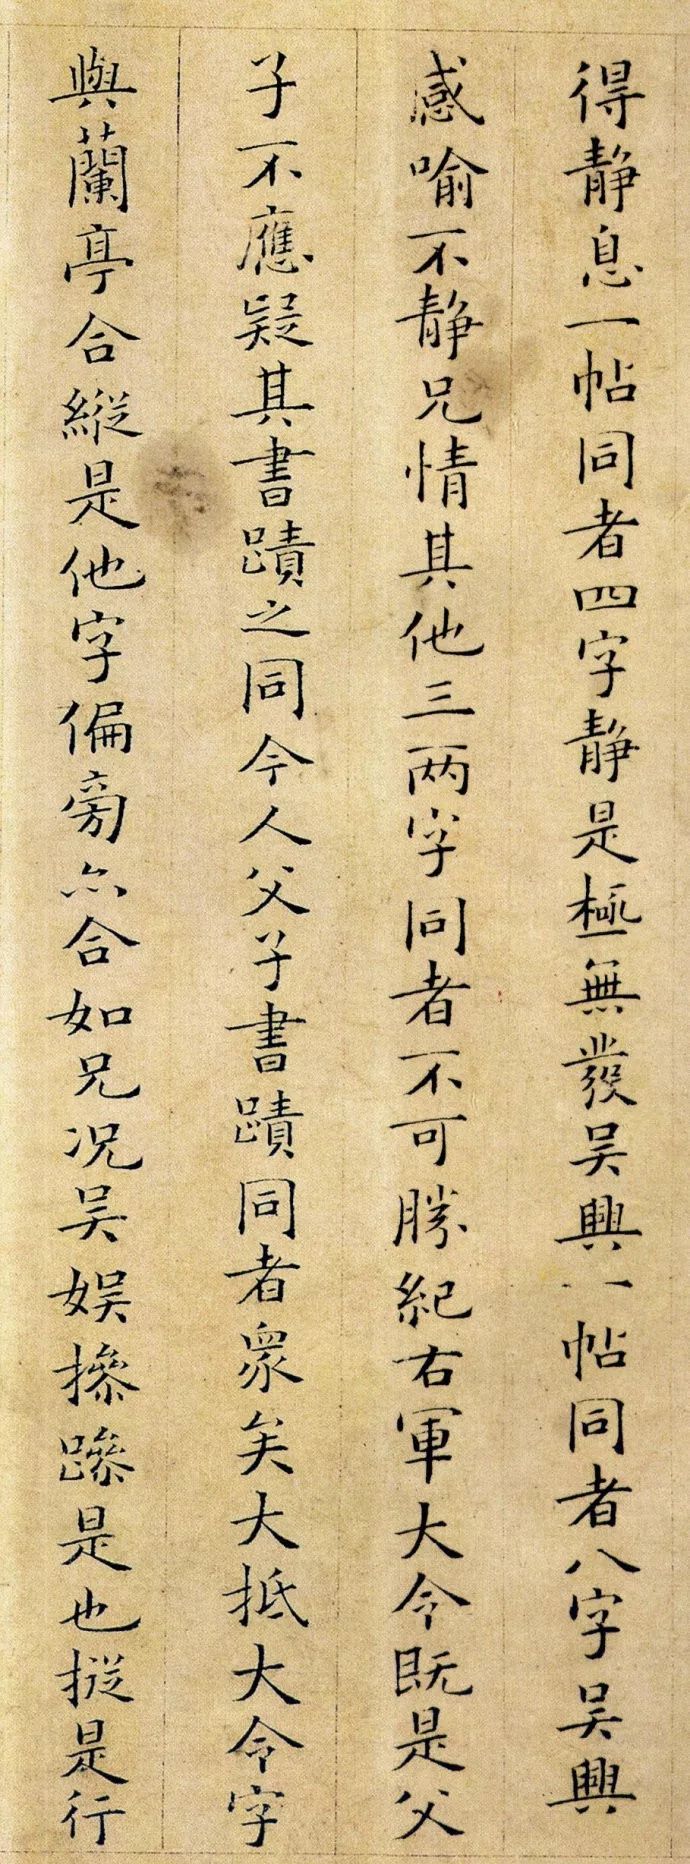 得静息一帖同者四字静是極無發吴興一帖同者八字吴興
感喻不静兄情其他三两字同者不可勝紀右軍大令既是父
子不應疑其書蹟之同今人父子書蹟同者衆矣大抵大令字
與蘭亭合縱是他字偏旁亦合如兄况吴娱摻蹤是也摐是行